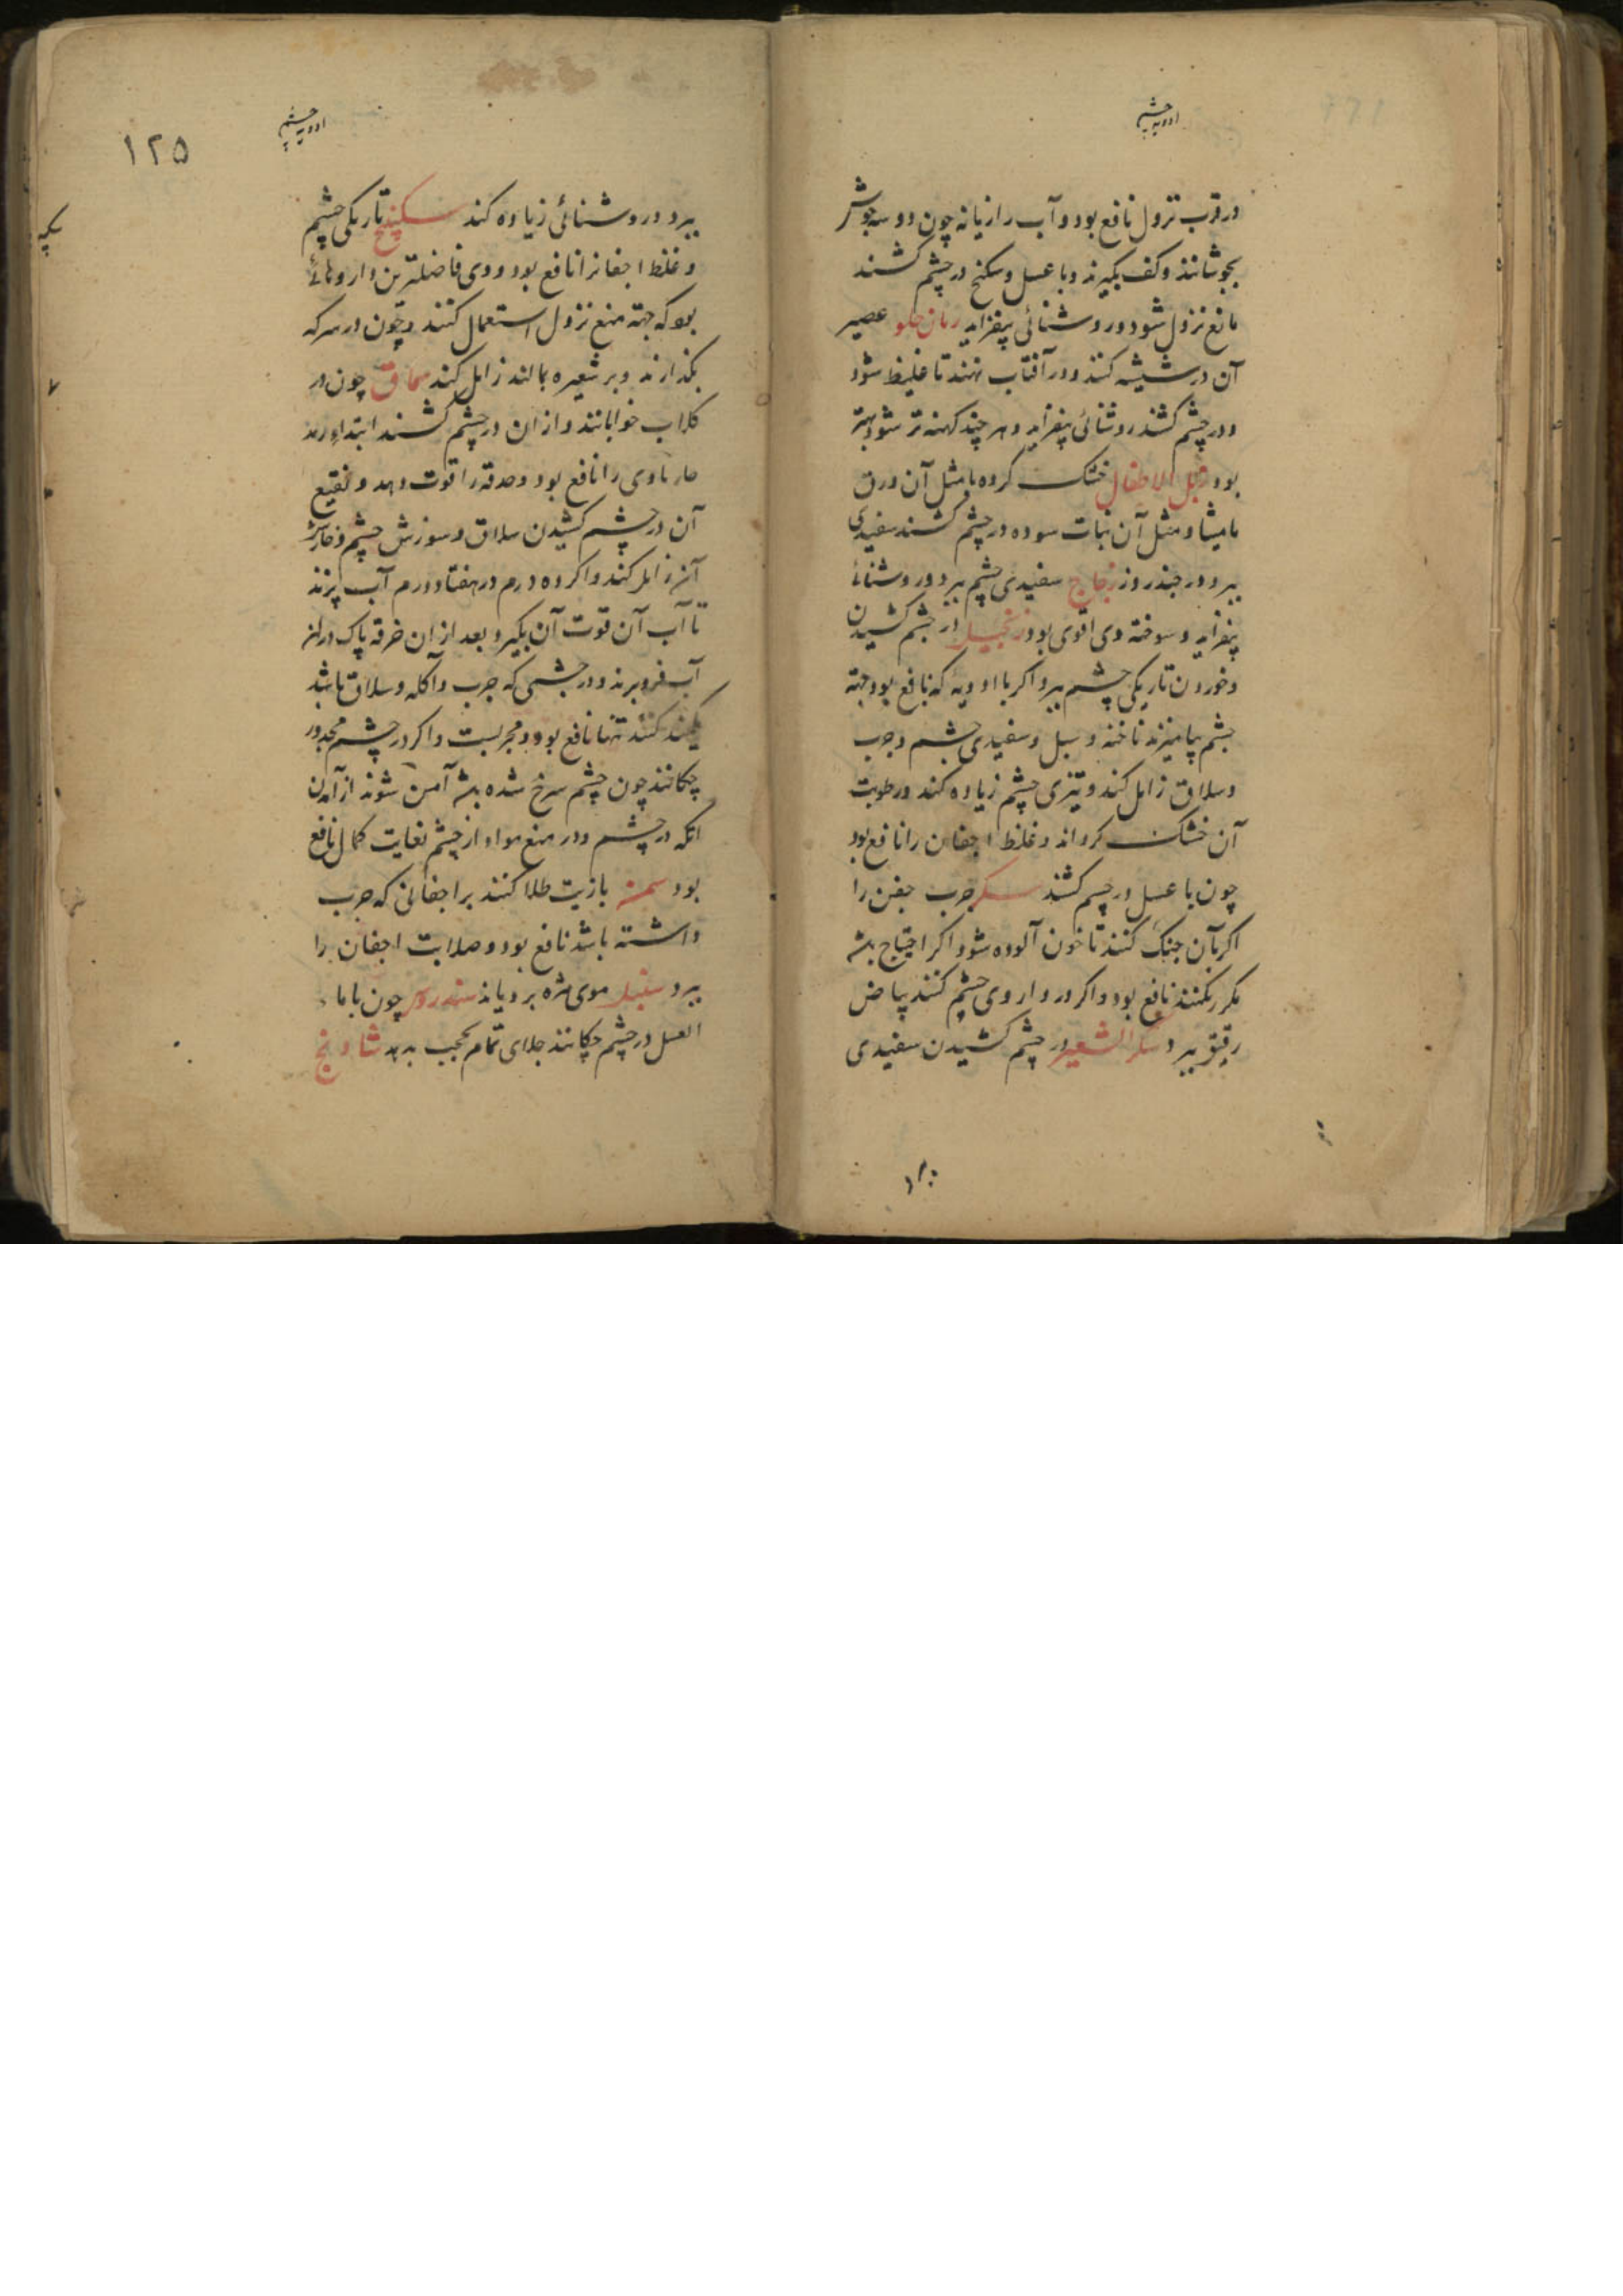 ادویه چشم
در قرب نزول نافع بود و آب رازیانه چون دو سه جوش
بجوشانند و کف بگیرند و با عسل و سکنج در چشم کشند
مانع نزول شود و روشنائی بیفزاید رمان حلو عصیر
آن در شیشه کنند و در آفتاب نهند تا غلیظ شود
و در چشم کشند روشنائی بیفزاید و هر چند کهنه تر شود بهتر
بود زبل الاطفال خشک کرده با مثل آن ورق
مامیثا و مثل آن نبات سوده در چشم کشند سفیدی
ببرد در چند روز زجاج سفیدی چشم ببرد و روشنائی
بیفزاید و سوخته وی اقوی بود زنجبیل در چشم کشیدن
و خوردن تاریکی چشم ببرد و اگر با ادویه که نافع بود جهة
چشم بیامیزند ناخنه و سبل و سفیدی چشم و جرب
و سلاق زایل کند و تیزی چشم زیاده کند و رطوبت
آن خشک کرداند و غلظ اجفان را نافع بود
چون با عسل در چشم کشند سکر جرب جفن را
اکر بآن جنک کنند تا خون آلوده شود اکر احتیاج باشد
مکرر بکنند نافع بود و اکر در داروی چشم کنند بیاض
رقیق ببرد و سکر الشعیر در چشم کشیدن سفیدی
ببرد
ادویه چشم
۱۲۵
ببرد و روشنائی زیاده کند سکبینج تاریکی چشم
و غلظ اجفانرا نافع بود و وی فاضلترین داروهائی
بود که جهة منع نزول استعمال کنند و چون در سرکه
بکدازند و بر شعیره بمالند زایل کند سماق چون در
کلاب خوابانند و از ان در چشم کشند ابتداء رمد
حار مادی را نافع بود و حدقه را قوت دهد و نقیع
آن در چشم کشیدن سلاق و سوزش چشم و خارش
آن زایل کند و اکر ده درم در هفتاد درم آب پزند
تا آب آن قوت آن بگیرد و بعد از ان خرقه پاک در ان
آب فرو برند و در چشمی که جرب و آکله و سلاق باشد
کنند تنها نافع بود و مجربست و اکر در چشم مجدور
چکانند چون چشم سرخ شده باشد آمن شوند از آمدن
آبله در چشم و در منع مواد از چشم بغایت کمال نافع
بود سمنه بازیت طلا کنند بر اجفانی که جرب
داشته باشد نافع بود و صلابت اجفان را
ببرد سنبل موی مژه برویاند سندروس چون با ماء
العسل در چشم چکانند جلای تمام عجب بدهد شادنج